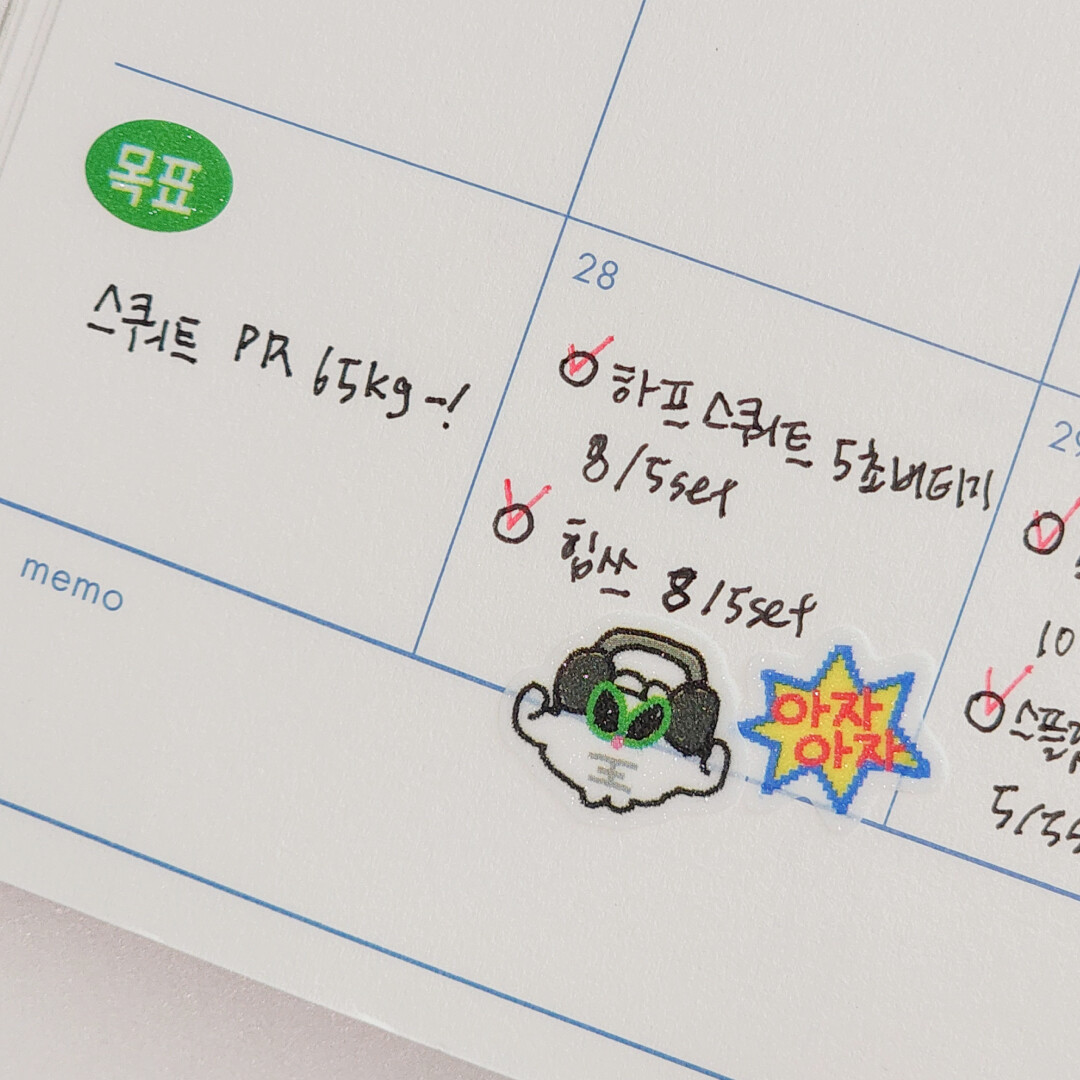 목표
스쿼트 PR 65kg~!
28
하프 스쿼트 5초 버티기
8/5set
힙싸 8/5set
조
아자
아자
29
10
memo